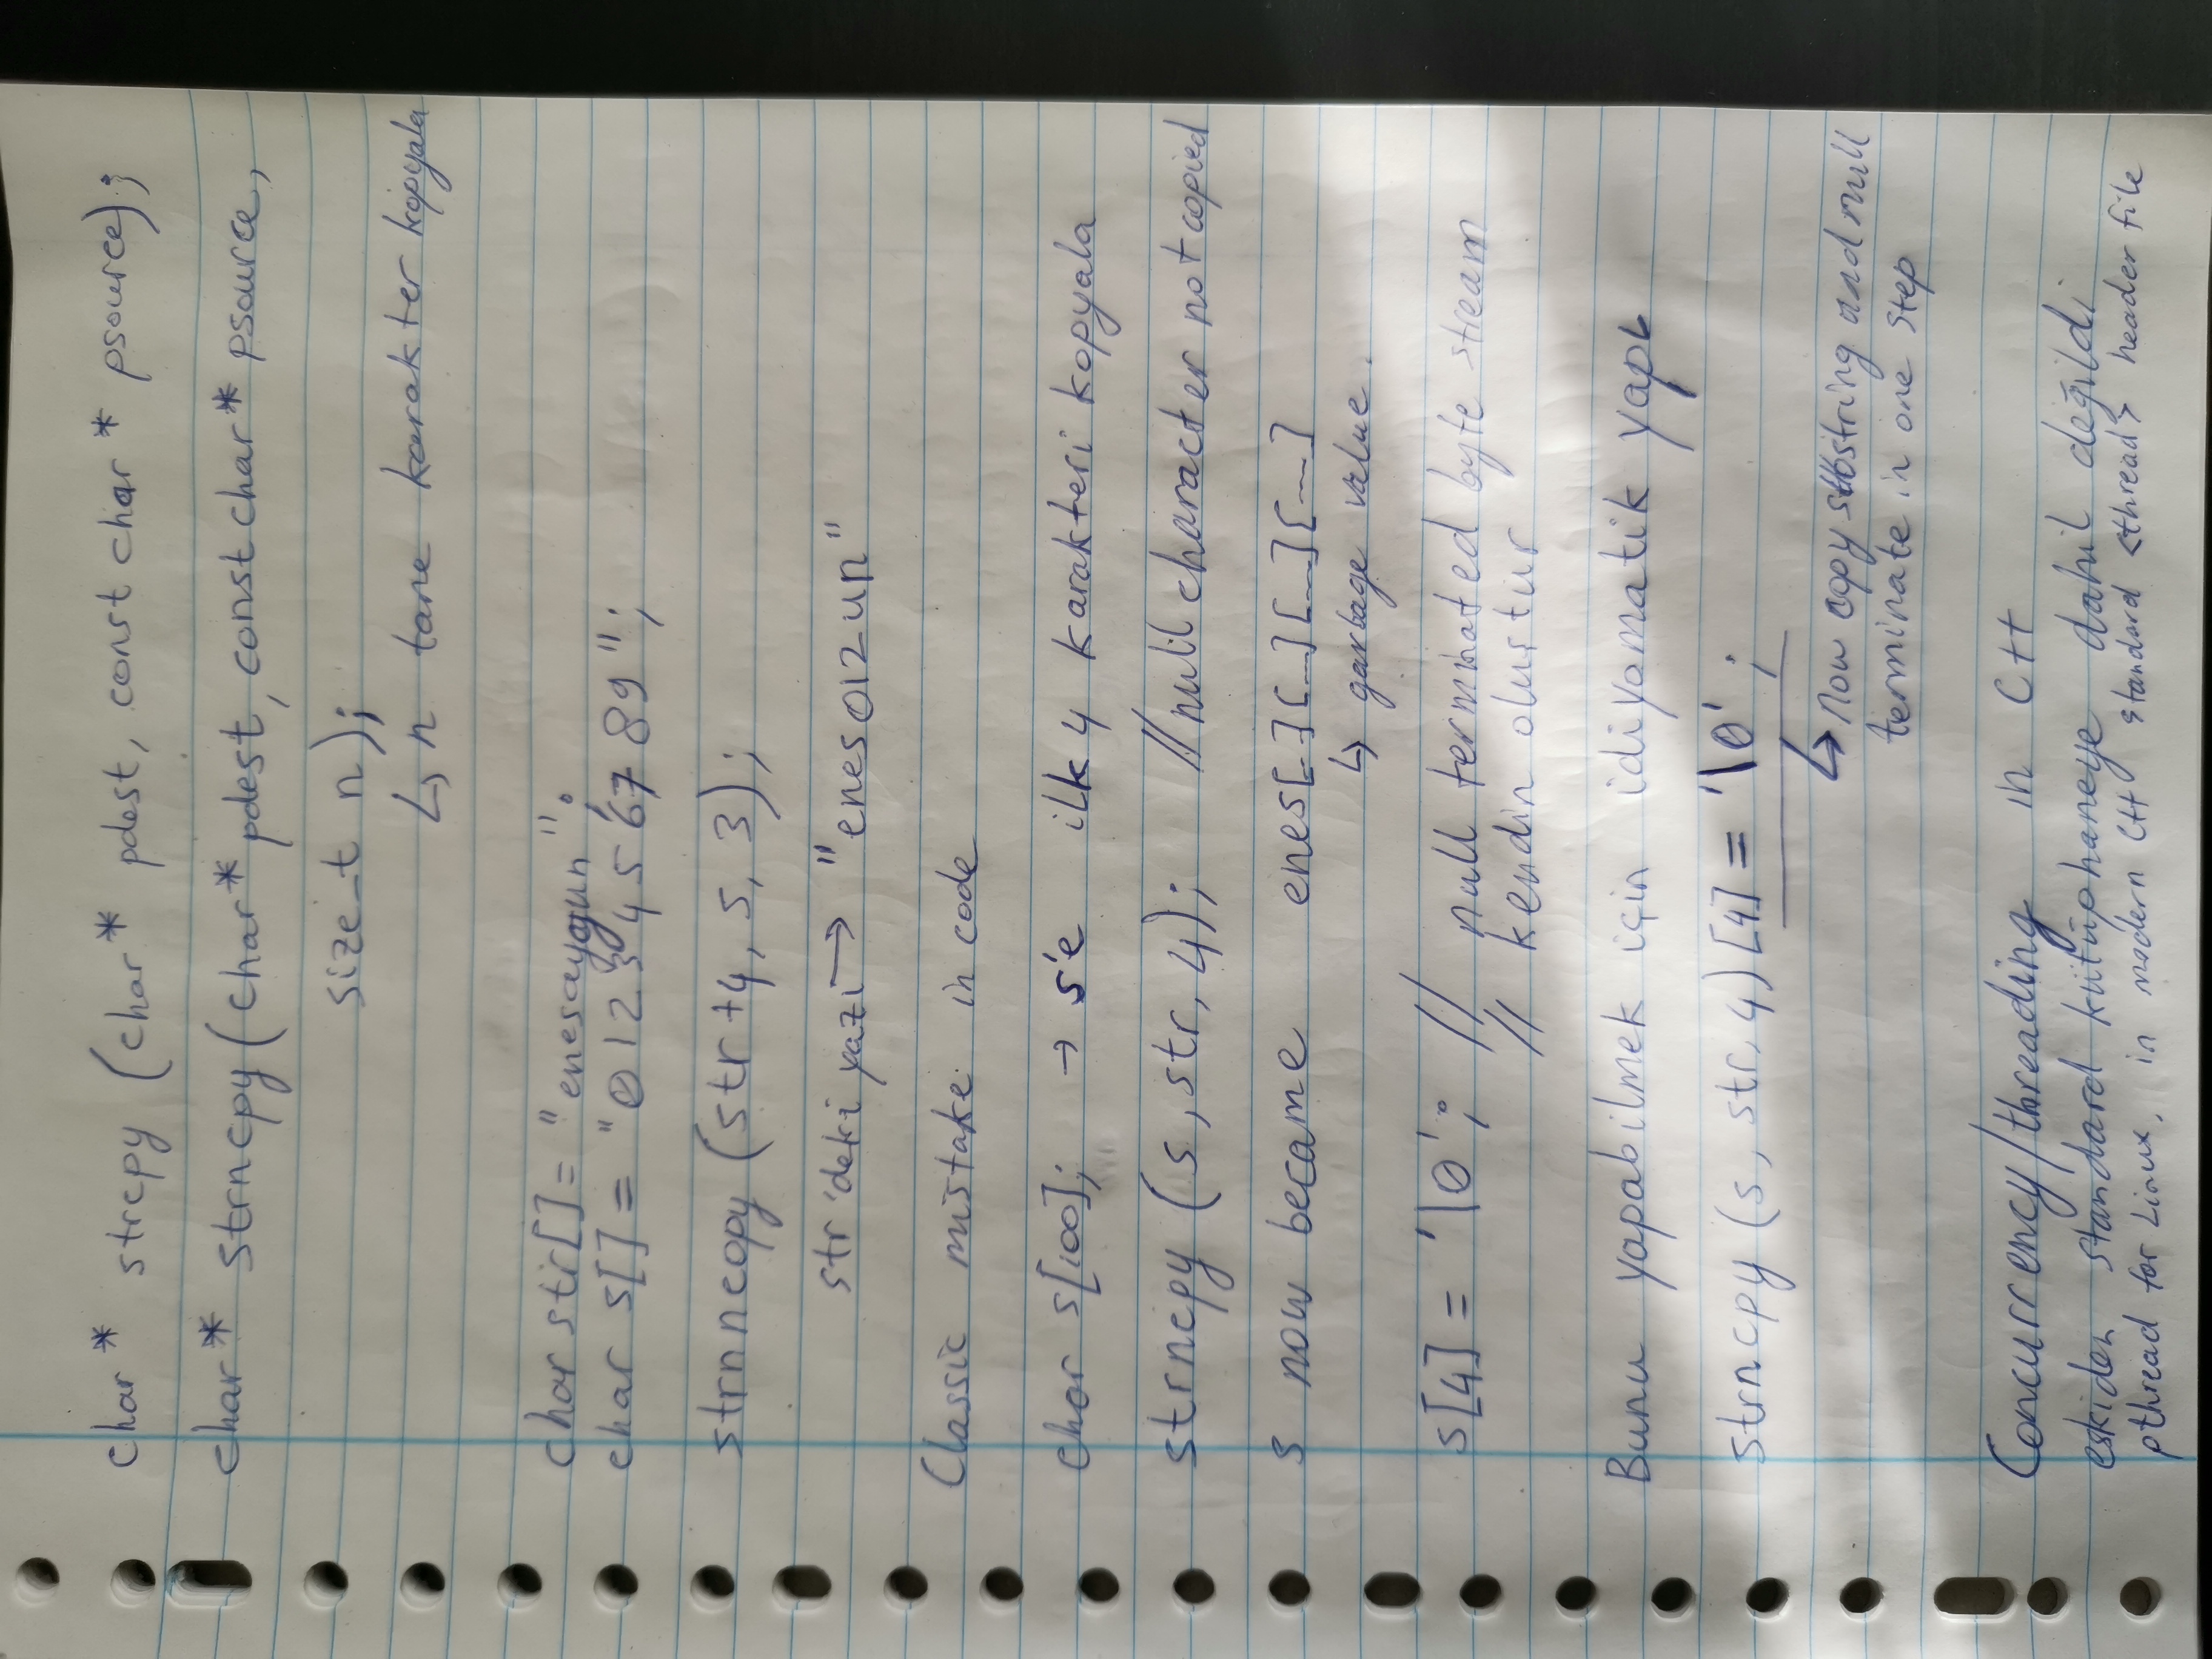 char* strcpy (char* pdest, const char* psource);
char* strncpy (char* pdest, const char* psource,
size_t n);
↳ n tane karakter kopyala
char str[] = "enesaygun";
char s[] = "0123456789";
strnncopy (str+4, s, 3);
str'deki yazı → "enes012un"
Classic mistake in code
char s[100]; → s'e ilk 4 karakteri kopyala
strncpy (s, str, 4); //null character not copied
s now became enes[_][_][_][_]
↳ garbage value.
s[4] = '\0'; // null terminated byte stream
// kendin oluştur
Bunu yapabilmek için idiyomatik yapı
strncpy (s, str, 4)[4] = '\0';
↳ now copy substring and null
terminate in one step
Concurrency/threading in C++
eskiden standard kütüphaneye dahil değildi
pthread for Linux, in modern C++ standard <thread> header file